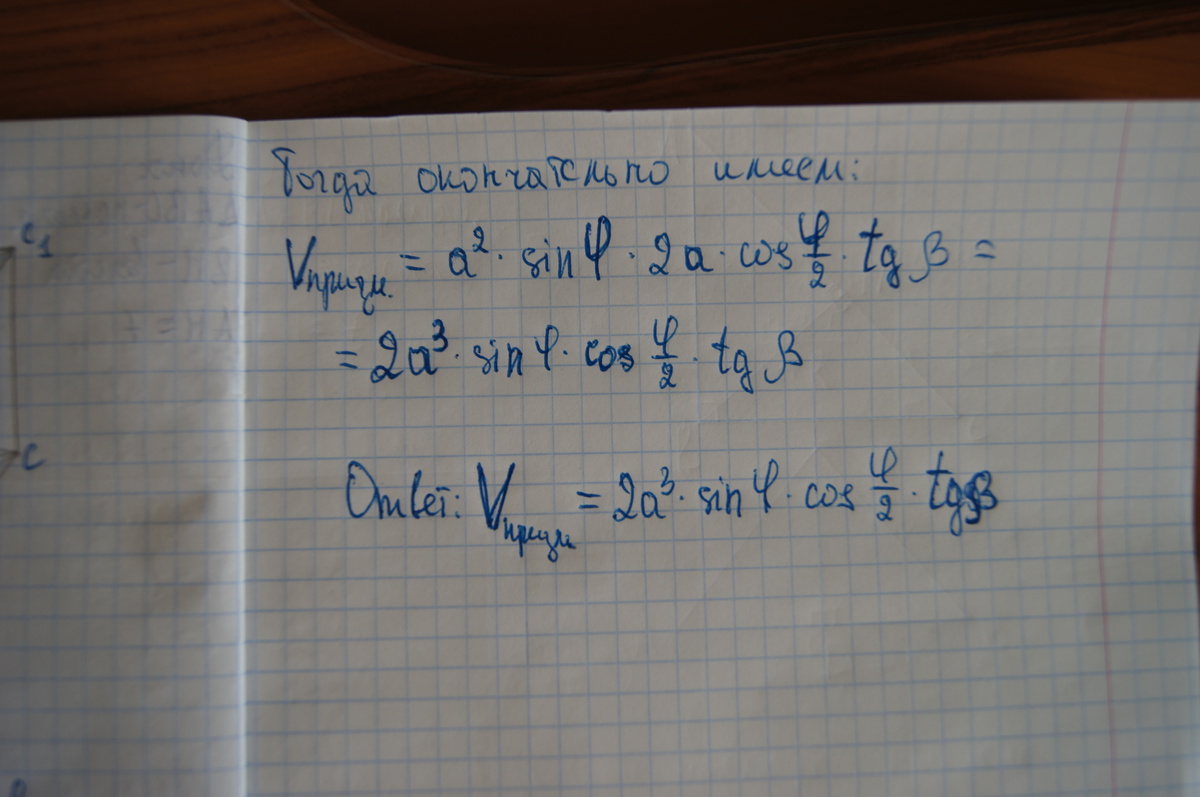 Тогда окончательно имеем:
C₁
Vпризм. = a² · sin φ · 2a · cos φ/2 · tg β =
= 2a³ · sin φ · cos φ/2 · tg β
C
Ответ: Vпризм = 2a³ · sin φ · cos φ/2 · tg β